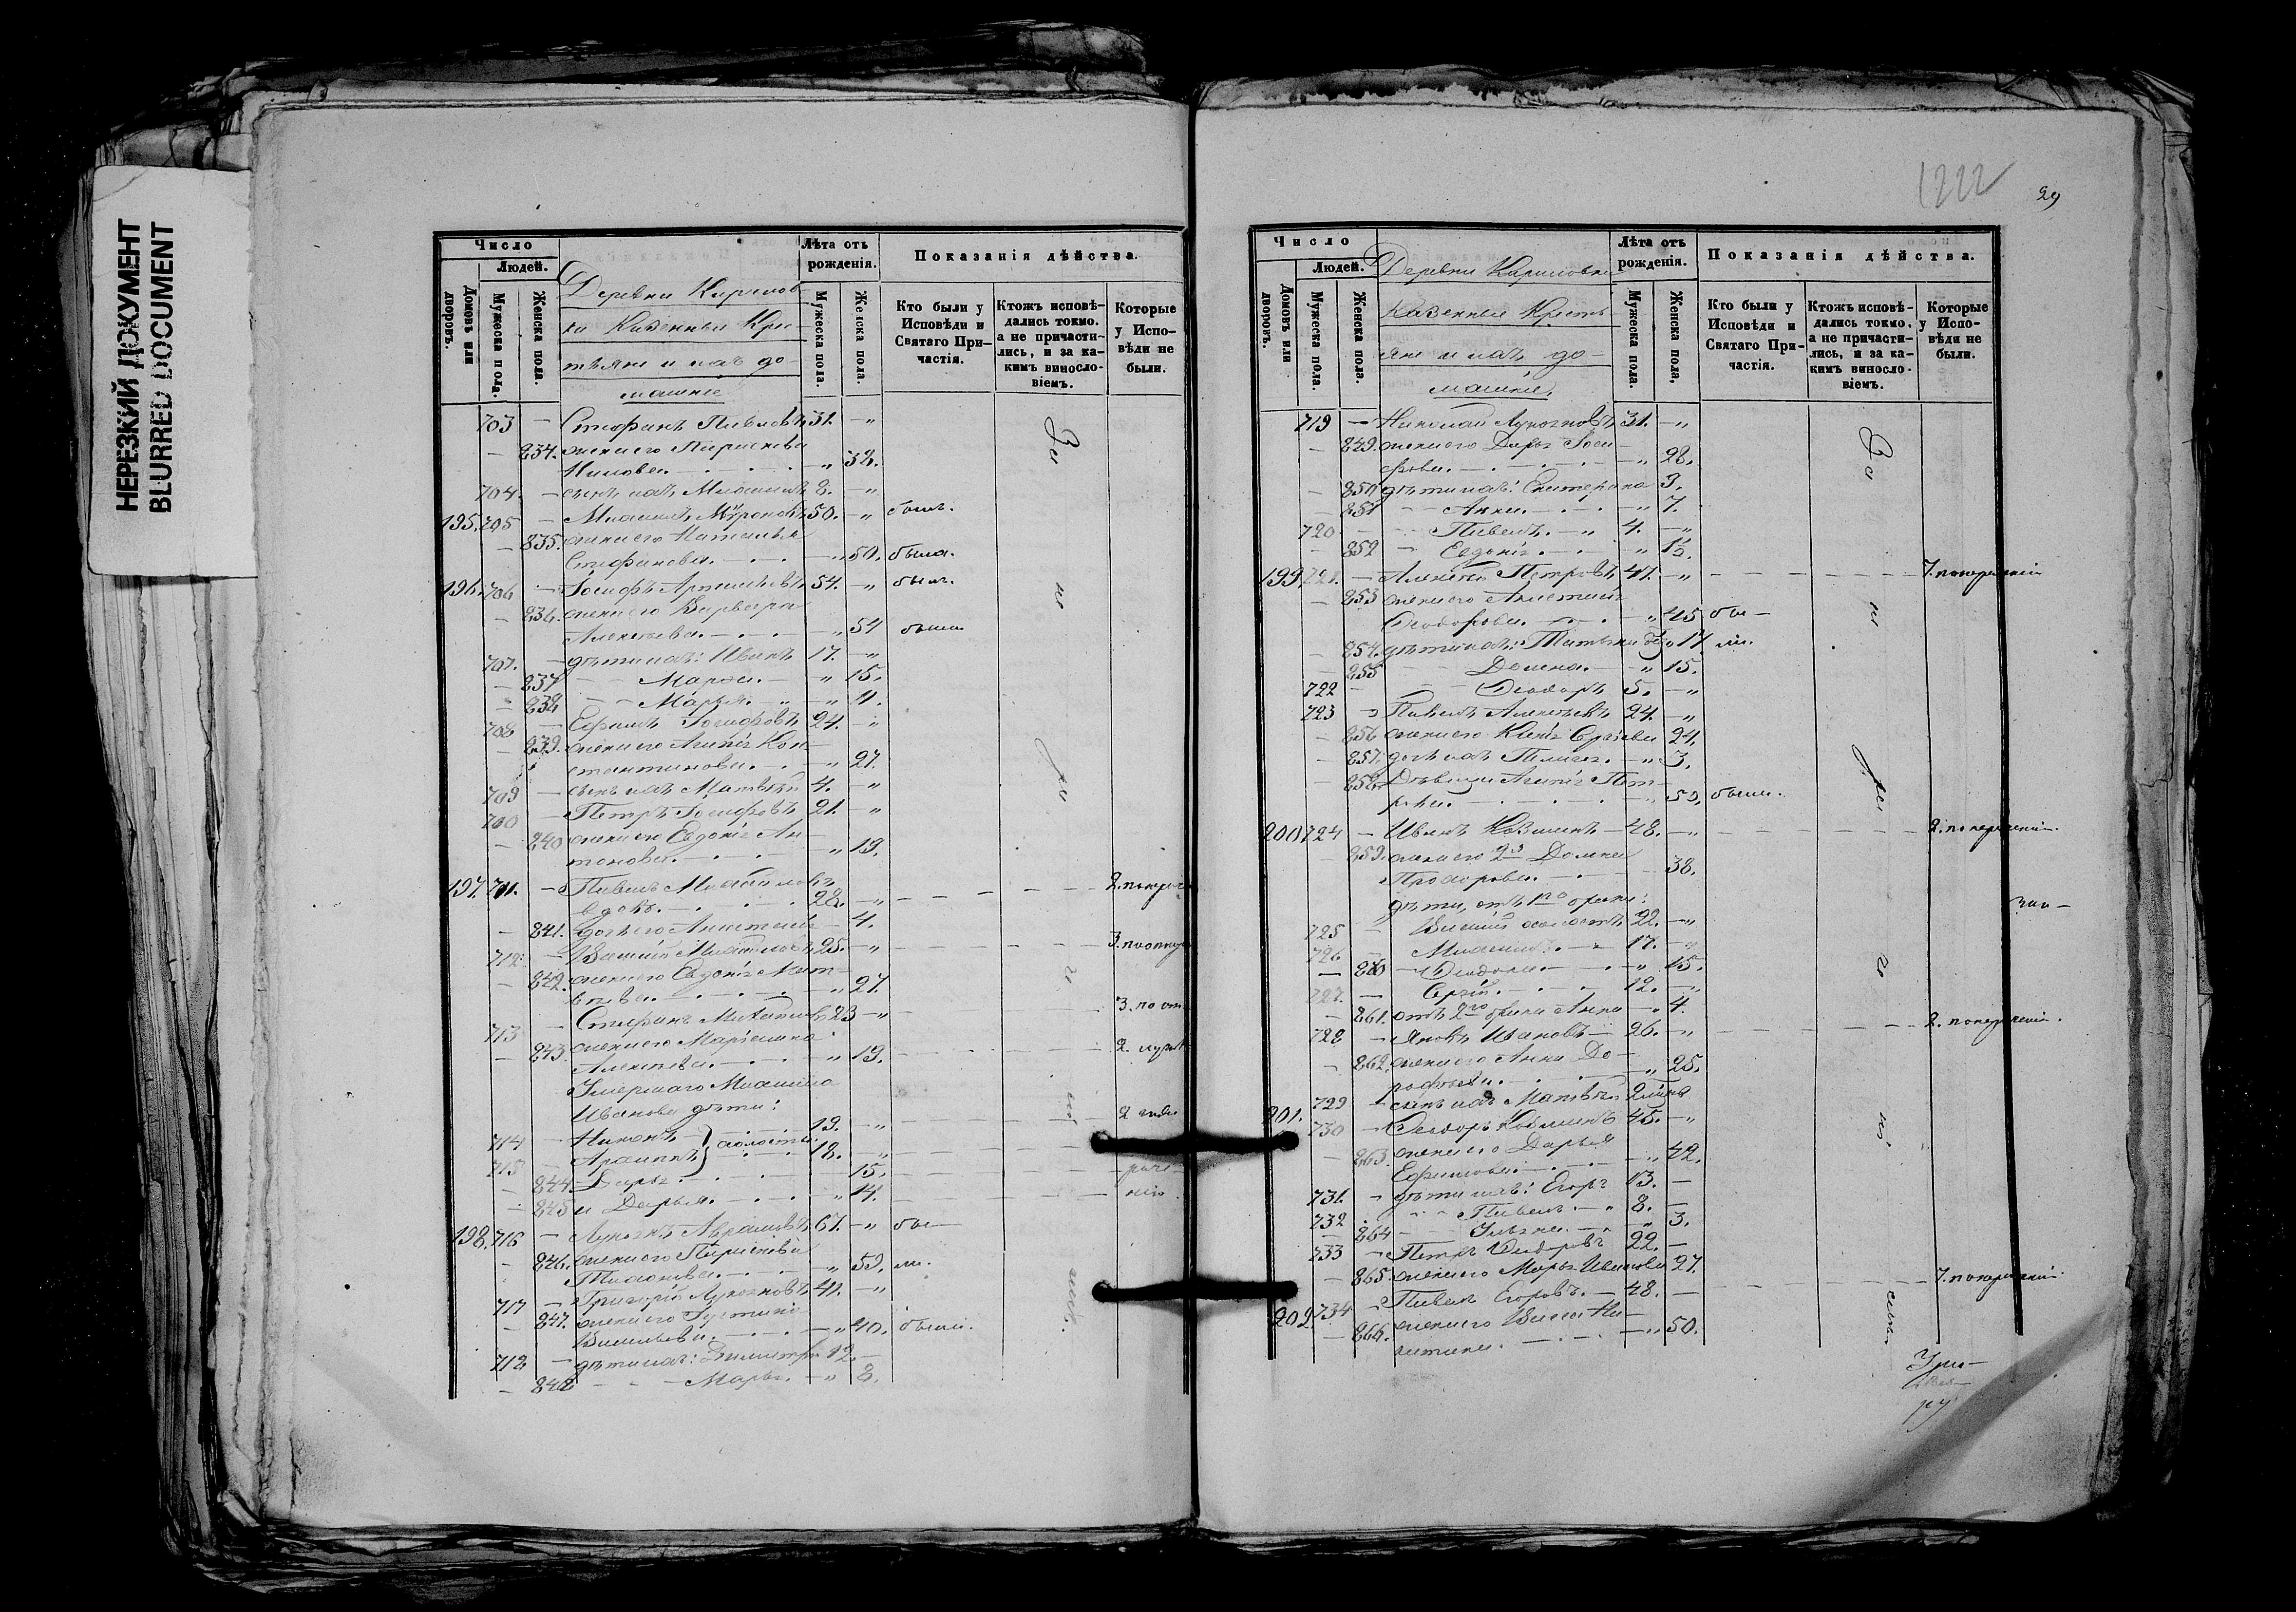 НЕРЕЗКИЙ ДОКУМЕНТ
BLURRED DOCUMENT
Число
Людей.
Домовъ или дворовъ.
Мужеска пола.
Женска пола.
Деревни Кирилов-
ки Казенные Кре-
стьяне и ихъ до-
машніе
Лѣта отъ рожденія.
Мужеска пола.
Женска пола.
Показанія дѣйства.
Кто были у Исповѣди и Святаго При-частія.
Ктожъ исповѣ-дались токмо, а не причасти-лись, и за ка-кимъ винослo-віемъ.
Которые у Испо-вѣди не были.
703 — Стефанъ Павловъ 31. — „
— 834. жена его Параскева
Нилова. „ 32.
704. — сынъ ихъ Михаилъ 8. — „
195. 705 — Михаилъ Мѵроновъ 50. — „ былъ.
— 835. жена его Наталья
Стефанова. „ 50. была.
196. 706 — Іосифъ Артемьевъ 54. — „ былъ.
— 836. жена его Варвара
Алексѣева. „ 54 была
707. — дѣти ихъ: Иванъ 17. — „
— 837 Марѳа. „ 15.
— 838. Марья. „ 11.
708 — Ефимъ Іосифовъ 24. — „
— 839. жена его Агапія Кон-
стантинова. „ 27.
709 — сынъ ихъ Матвѣй 4. — „
710 — Петръ Іосифовъ 21. — „
— 840 жена его Евдокія Ан-
тонова. „ 19.
197. 711. — Павелъ Михайловъ
вдовъ. 28. — „ 2. по нерач
— 841. дочь его Анастасія 4.
712. — Василій Михайловъ 25. — „ 3. по отлуч
— 842. жена его Евдокія Мат-
вѣева. „ 27.
713 — Стефанъ Михайловъ 23 — „ 3. по отл
— 843. жена его Маріанна
Алексѣева. „ 19. 2.
Умершаго Михаила
Иванова дѣти:
714 — Никонъ } холосты 19. — „ 2
715 — Архиппъ 18. — „
— 844. Дарья 15. раче-
— 845 и Дарья. „ 14. нію.
198. 716 — Лукіанъ Аврамовъ 67. — „ бы —
— 846. жена его Параскева
Тихонова. „ 59. ли.
717 — Григорій Лукіановъ 41. — „
— 847. жена его Іустина
Васильева. „ 40. были.
718 — дѣти ихъ: Димитрій 12. —
— 848 Марья. „ 8.
За
не
ра
че
ні
емъ.
1222
29
Число
Людей.
Домовъ или дворовъ.
Мужеска пола.
Женска пола.
Деревни Кириловки
Казенные Кресть-
яне и ихъ до-
машніе,
Лѣта отъ рожденія.
Мужеска пола.
Женска пола,
Показанія дѣйства.
Кто были у Исповѣди и Святаго При-частія.
Ктожъ исповѣ-дались токмо, а не причасти-лись, и за ка-кимъ винослo-віемъ.
Которые у Испо-вѣди не были.
719 — Николай Лукіановъ 31. — „
— 849. жена его Дарья Іоси-
фова. „ 28.
— 850 дѣти ихъ: Екатерина 3.
— 851 Анна. „ 7.
720 — Павелъ. 4. — „
— 852 Евдокія. „ 1½.
199. 721. — Алексѣй Петровъ 47. — „ 7. по нераченію
— 853 жена его Анастасія
Ѳеодорова. „ 45 бы —
— 854. дѣти ихъ: Татьяна „ 17 ли.
— 855 Домна. „ 15.
722 — Ѳеодоръ 5. — „
723 — Павелъ Алексѣевъ 24. — „
— 856 жена его Ксенія Сергіева 24.
— 857. дочь ихъ Пелагея. „ 3.
— 858. Дѣвица Агапія Пет-
рова. „ 59. были.
200 724 — Иванъ Козминъ 48. — „ 2. по нераченію.
— 859. жена его 2я Домна
Прохорова. 38.
дѣти, отъ 1го брака:
725 — Василій холостъ 22. — „
726 — Михаилъ. 17. — „
— 860 — Ѳеодосія. „ 15.
727. — Сергій. 12. — „
— 861. отъ 2го брака Анна — „ 4.
728 — Яковъ Ивановъ 26. — „ 2. по нераченію.
— 862. жена его Анна До-
рофѣева. „ 25.
729 — сынъ ихъ Матвѣй
201. 730 — Ѳеодоръ Козминъ 45. — „
— 863. жена его Дарья
Ефимова. „ 42.
731. — дѣти ихъ: Егоръ 13. —
732 Павелъ. — „ 8. —
— 864 — Ульяна. — „ 3.
733 — Петръ Ѳеодоровъ 22. —
— 865. жена его Марья Иванова 27.
202. 734 — Павелъ Егоровъ. — 48. — 7. по нераченію.
— 866. жена его Васса Ни-
китина. „ 50.
За
не
ра
че
ні
емъ.